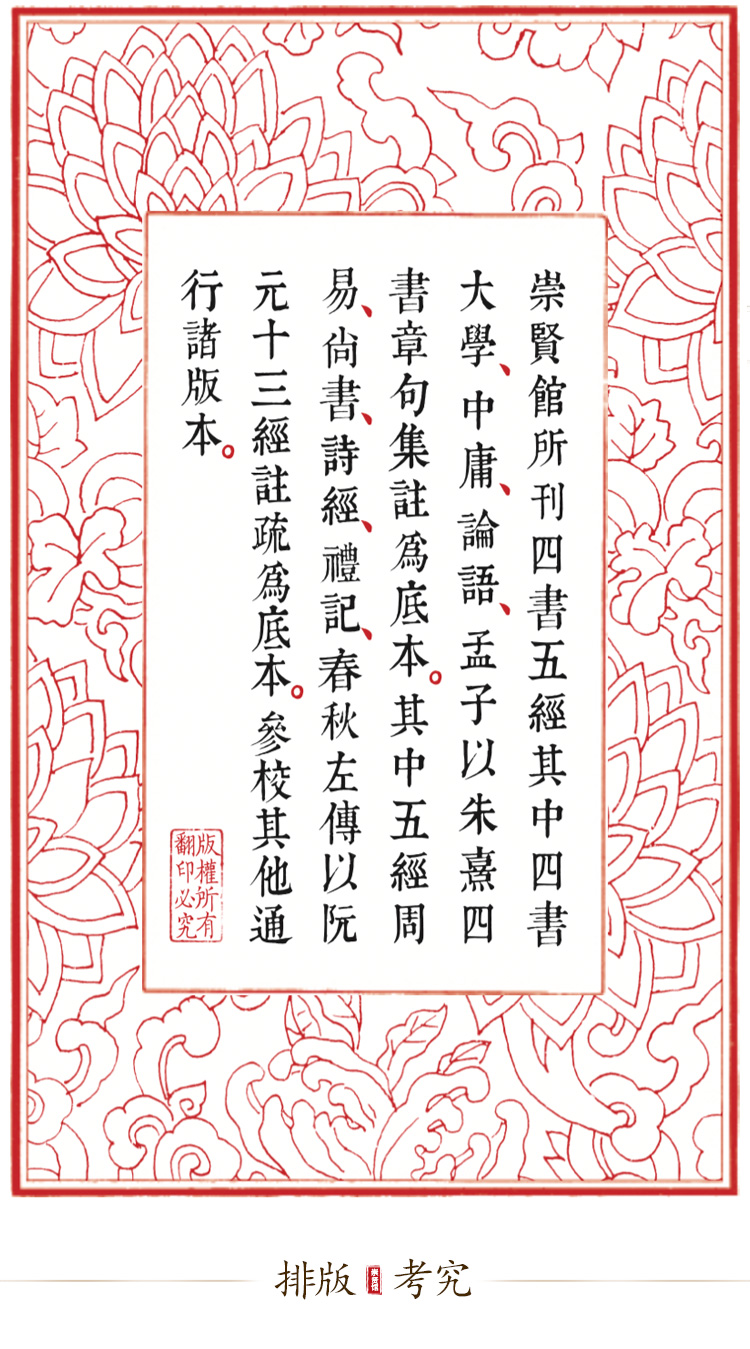 崇賢館所刊四書五經其中四書
大學、中庸、論語、孟子以朱熹四
書章句集註爲底本。其中五經周
易、尙書、詩經、禮記、春秋左傳以阮
元十三經註疏爲底本。參校其他通
行諸版本。
版權所有
翻印必究
排版 崇賢館 考究